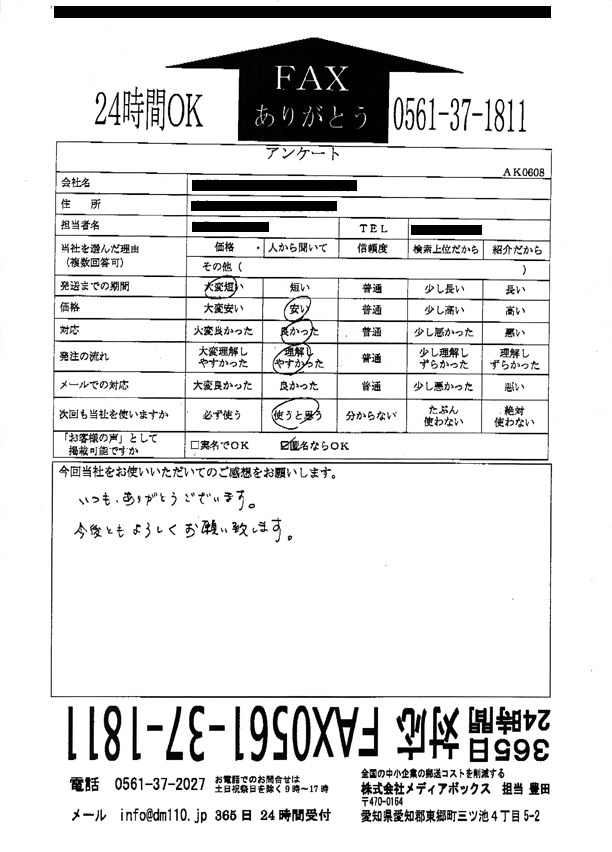 FAX
24時間OK
ありがとう
0561-37-1811
アンケート
AK0608
会社名
住　所
担当者名
TEL
当社を選んだ理由
(複数回答可)
価格 人から聞いて 信頼度 検索上位だから 紹介だから
その他 ( )
発送までの期間 大変短い 短い 普通 少し長い 長い
価格 大変安い 安い 普通 少し高い 高い
対応 大変良かった 良かった 普通 少し悪かった 悪い
発注の流れ 大変理解し 理解し 普通 少し理解し 理解し
やすかった やすかった ずらかった ずらかった
メールでの対応 大変良かった 良かった 普通 少し悪かった 悪い
次回も当社を使いますか 必ず使う 使うと思う 分からない たぶん 絶対
使わない 使わない
「お客様の声」として
掲載可能ですか
□実名でOK ☑匿名ならOK
今回当社をお使いいただいてのご感想をお願いします。
いつも、ありがとうございます。
今後ともよろしくお願い致します。
365日
24時間
対応 FAX0561-37-1811
電話 0561-37-2027 お電話でのお問合せは
土日祝祭日を除く9～17時
メール info@dm110.jp 365日 24時間受付
全国の中小企業の郵送コストを削減する
株式会社メディアボックス 担当 豊田
〒470-0164
愛知県愛知郡東郷町三ツ池4丁目5-2